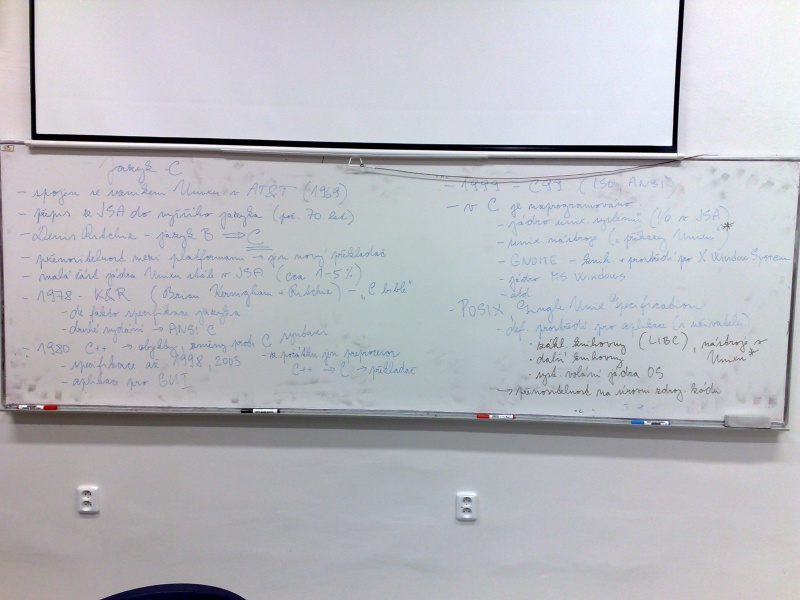 Jazyk C
- spojen se vznikem Unixu v AT&T (1969)
- přepis ze JSA do vyššího jazyka (poč. 70 let)
- Denis Ritchie - jazyk B ⇒ C
- přenositelnost mezi platformami → jen nový překladač
- malá část jádra Unixu stále v JSA (cca 1-5%)
- 1978 - K&R (Brian Kernighan + Ritchie) - "C bible"
- de fakto specifikace jazyka
- druhé vydání → ANSI C
- 1980 C++ → objekty, změny proti C syntaxi
- specifikace až 1998, 2003
- ze počátku jen preprocesor
C++ → C → překladač
- aplikace pro GUI
- 1999 - C99 (ISO, ANSI)
- v C je naprogramováno
- jádro unix systémů (% v JSA)
- unix nástroje („příkazy Unixu") *
- GNOME - knih + prostředí pro X Window System
- jádro MS Windows
- atd
- POSIX Single Unix Specification
- def. prostředí pro aplikace (a uživatele)
- zákl knihovny (LIBC), nástroje v Unixu *
- další knihovny
- syst. volání jádra OS
→ přenositelnost na úrovni zdroj. kódu